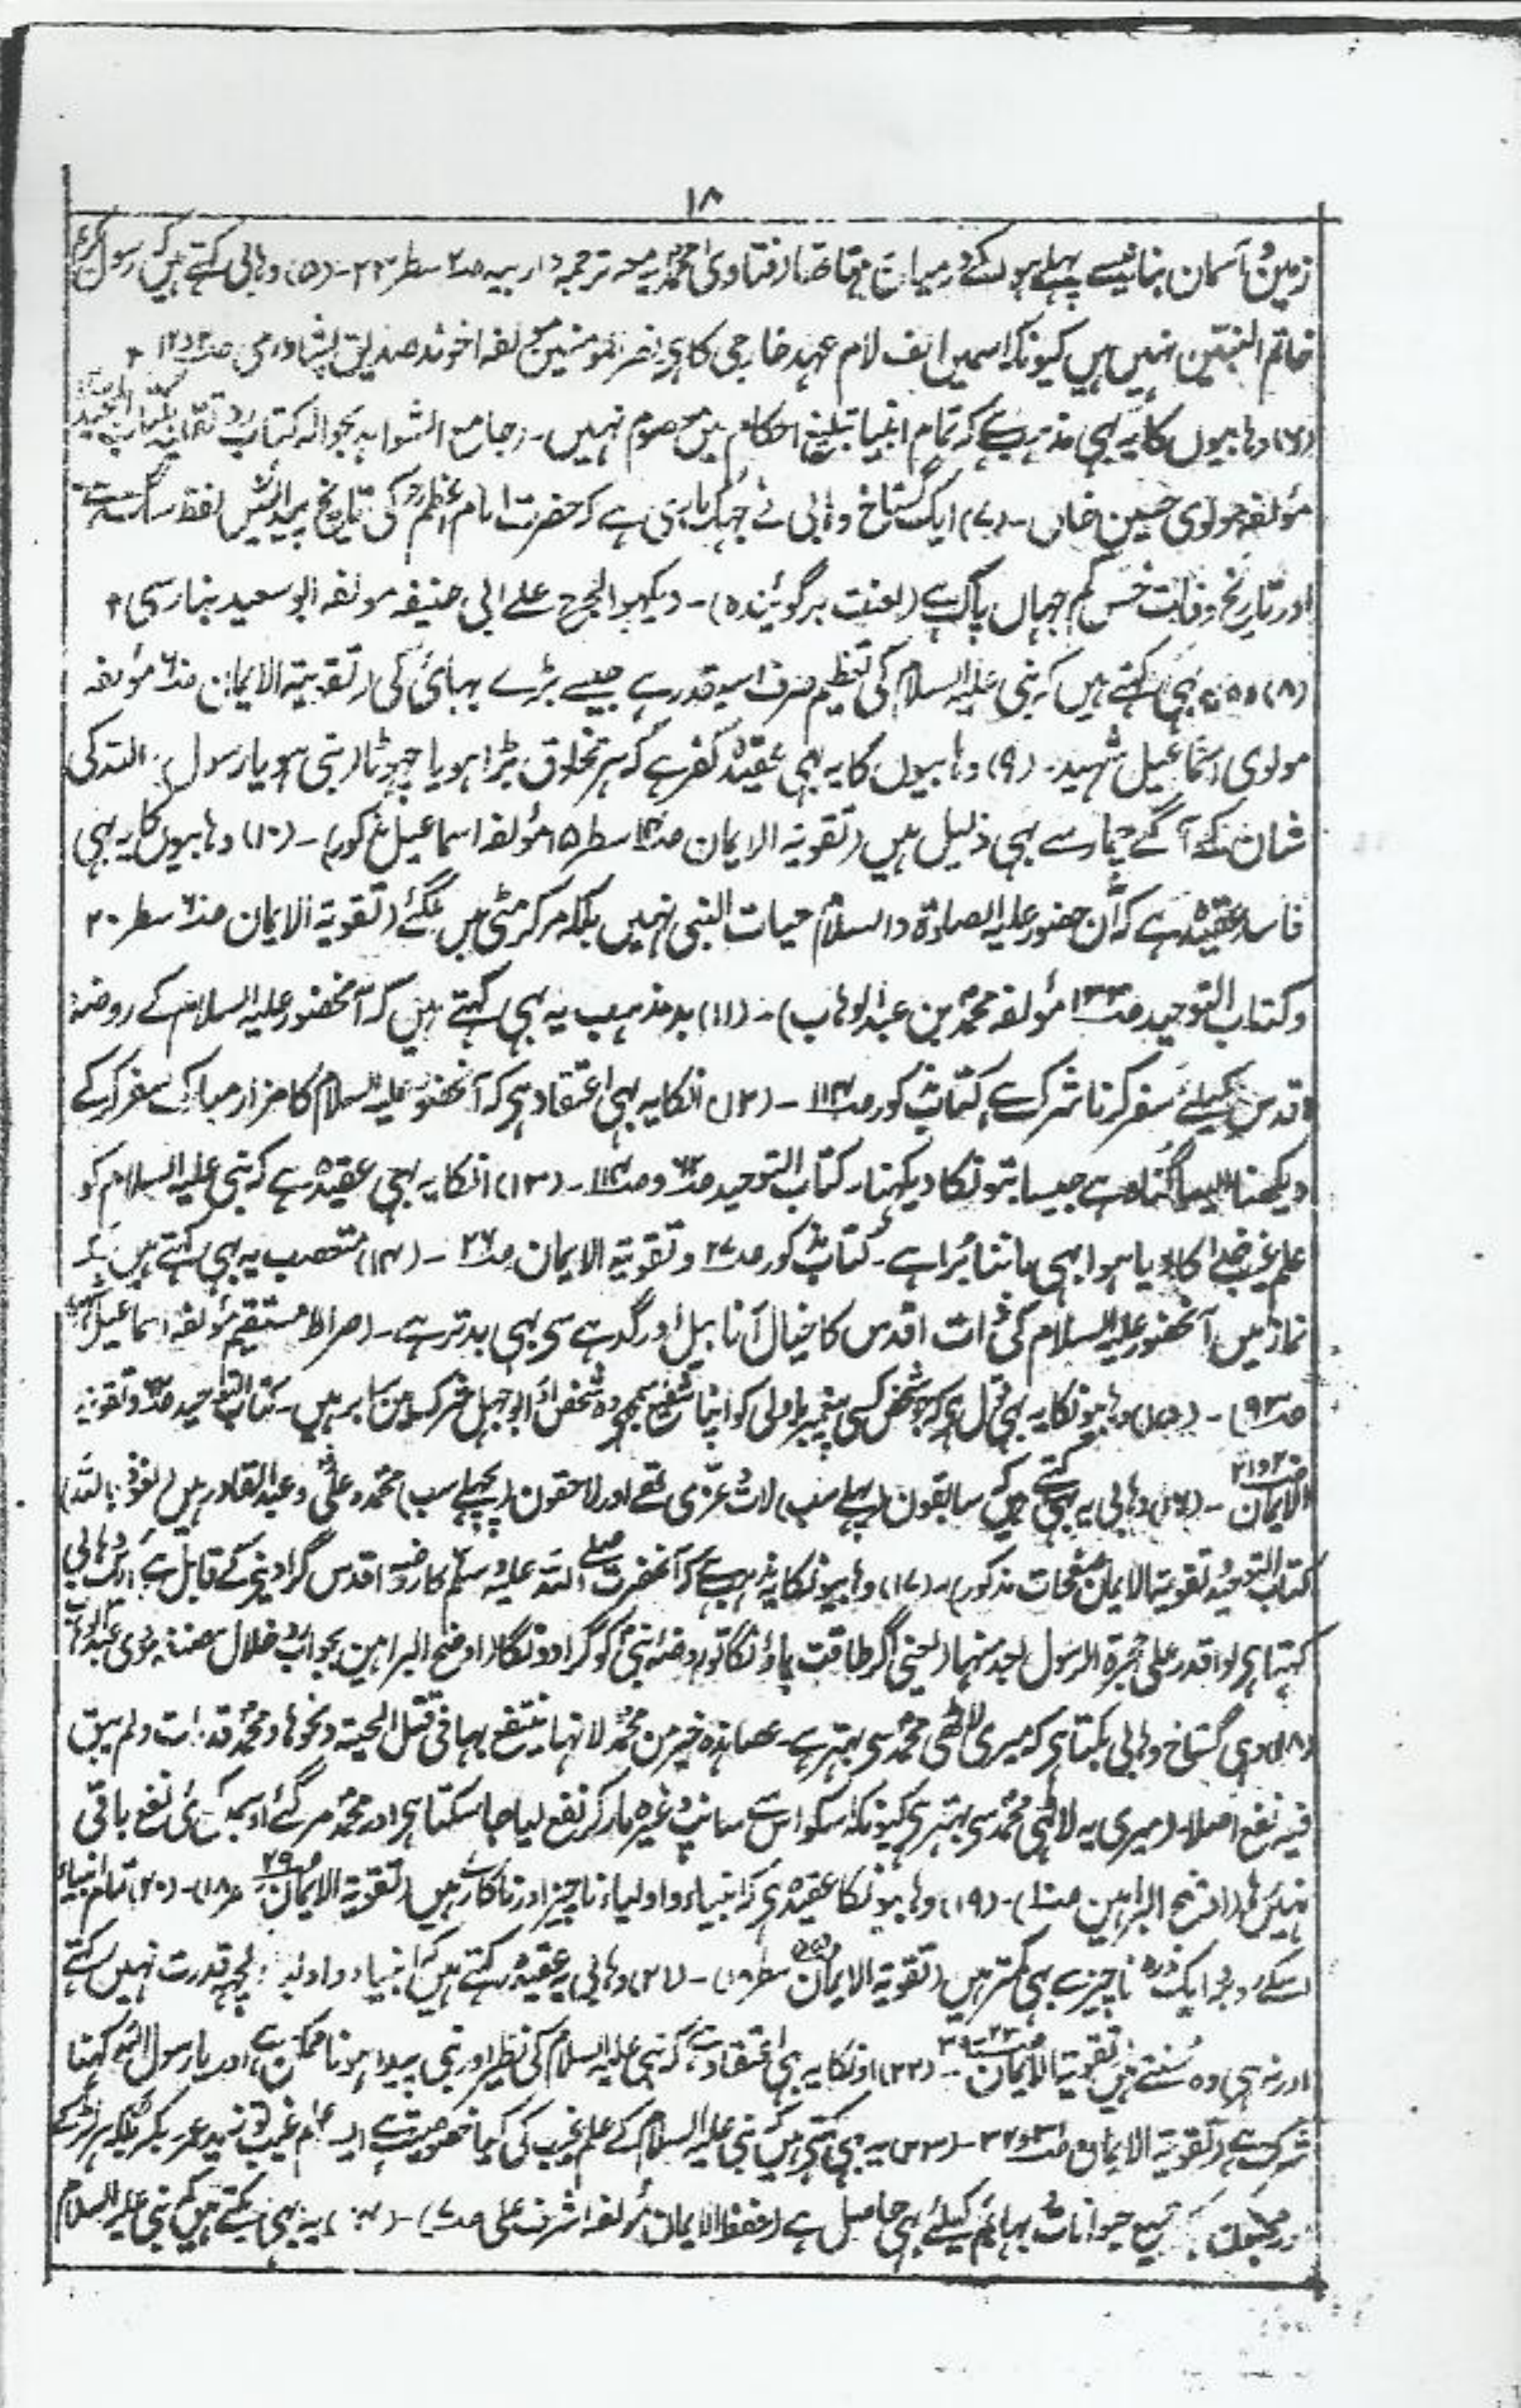 ١٨
زمین و آسمان بنانیسے پہلے ہولکے درمیان تھا قضا رفتاوی محمدیہ معہ ترجمہ داربیہ صـ٢ سطر ٢٣ - (۵) وہابی کہتے ہیں کہ رسول کریم
خاتم النبیّین نہیں ہیں کیونکہ اسمیں الف لام عہد خارجی کا ہی نصر المومنین مولفہ اخوند صدیق پشاوری صـ ١٢
(٦) وہابیوں کا یہ بہی مذہب ہے کہ تمام انبیا تبلیغ احکام میں معصوم نہیں - (جامع الشواہد بحوالہ کتاب رد تقلید بکتاب المجید
مؤلفہ مولوی حسین خاں - (٧) ایک گستاخ وہابی نے جہک ماری ہے کہ حضرت امام اعظم رح کی تاریخ پیدائش لفظ سگ ہے
اور تاریخ وفات خس کم جہاں پاک ہے (لعنت برگوئیندہ) - دیکہو الجرح علے ابی حنیفہ مولفہ ابو سعید بنارسی
(٨) وہ یہ بہی کہتے ہیں کہ نبی علیہ السلام کی تعظیم صرف اسیقدر ہے جیسے بڑے بہائی کی (تقویۃ الایمان صـ٦ مؤلفہ
مولوی اسماعیل شہید - (٩) وہابیوں کا یہ بہی عقیدہ کفر ہے کہ ہر مخلوق بڑا ہو یا چہوٹا (نبی ہو یا رسول) اللہ کی
شان کے آگے چمار سے بہی ذلیل ہیں (تقویۃ الایمان صـ١٤ سطر ١۵ مؤلفہ اسماعیل مذکور) - (١٠) وہابیوں کا یہ بہی
فاسد عقیدہ ہے کہ آن حضور علیہ الصلوۃ والسلام حیات النبی نہیں بلکہ مر کر مٹی میں ملگئے (تقویۃ الایمان صـ٦ سطر ٢٠
و کتاب التوحید صـ١٣٣ مؤلفہ محمد بن عبد الوہاب) - (١١) بد مذہب یہ بہی کہتے ہیں کہ آنحضور علیہ السلام کے روضہ
اقدس کیلئے سفر کرنا شرک ہے کتاب مذکور صـ١١٤ - (١٢) انکا یہ بہی اعتقاد ہی کہ آنحضور علیہ السلام کا مزار مبارک سفر کرکے
دیکھنا ایسا گناہ ہے جیسا بتونکا دیکہنا - کتاب التوحید صـ وصـ١١٤ - (١٣) انکا یہ بہی عقیدہ ہے کہ نبی علیہ السلام کو
علم غیب خدا کا دیا ہوا بہی ماننا بُرا ہے - کتاب مذکور صـ٢٧ و تقویۃ الایمان صـ٢٦ - (١٤) متعصب یہ بہی کہتے ہیں کہ
نماز میں آنحضور علیہ السلام کی ذات اقدس کا خیال آنا بیل اور گدہے سی بہی بدتر ہے - (صراط مستقیم مؤلفہ اسماعیل
صـ٩٣) - (١۵) وہابیونکا یہ بہی قول ہی کہ جو شخص کسی پیغمبر یا ولی کو اپنا شفیع سمجہی وہ شخص اور ابو جہل شرک میں برابر ہیں - کتاب التوحید صـ و تقویۃ
الایمان صـ - (١٦) وہابی یہ بہی کہتے ہیں کہ سابقون (پہلے سب) لات و عزّی تھے اور لاحقون (پچہلے سب) محمد و علی و عبد القادر ہیں (نعوذ باللہ)
کتاب التوحید و تقویۃ الایمان صفحات مذکور) - (١٧) وہابیونکا یہ مذہب ہے کہ آنحضرت صلے اللہ علیہ وسلم کا روضہ اقدس گرا دینے کے قابل ہے ایک وہابی
کہتا ہی لو اقدر علی حجرۃ الرسول لہدمتہا (یعنی اگر طاقت پاؤنگا تو روضہ نبی کو گرا دونگا (اوضح البراہین بجواب ضلال مصنفہ مولوی
(١٨) وہی گستاخ وہابی بکتا ہی کہ میری لاٹھی محمد سی بہتر ہے - عصا ہذہ خیر من محمد لانہا ینتفع بہا فی قتل الحیتہ ونحوہا ومحمد قد مات ولم یبق
فیہ نفع اصلا - (میری یہ لاٹھی محمد سی بہتر ہی کیونکہ اسکو اس سے سانپ وغیرہ مار کر نفع لیا جا سکتا ہی اور محمد مر گئے اور کوئی نفع باقی
نہیں رہا (اوضح البراہین صـ١) - (١٩) وہابیونکا عقیدہ ہی کہ انبیاء و اولیاء ناچیز اور ناکارے ہیں (تقویۃ الایمان صـ٢٩ - (٢٠) تمام انبیاء
اسکے روبرو ایک ذرہ ناچیز سے بہی کمتر ہیں (تقویۃ الایمان سطر ١٨) - (٢١) وہابی یہ عقیدہ رکہتے ہیں کہ انبیاء و اولیا کچہہ قدرت نہیں رکہتے
اور نہ ہی وہ سنتے ہیں تقویۃ الایمان صـ - (٢٢) اونکا یہ بہی اعتقاد ہے کہ نبی علیہ السلام کی نظیر اور نبی پیدا ہونا ممکن ہے، اور یا رسول اللہ کہنا
شرک ہے (تقویۃ الایمان صـ - (٢٣) یہ بہی کہتے ہیں کہ نبی علیہ السلام کے علم غیب کی کیا خصوصیت ہے ایسا علم غیب تو زید عمر بکر بلکہ ہر لڑکے
اور مجنون بلکہ جمیع حیوانات و بہائم کیلئے بہی حاصل ہے (حفظ الایمان مؤلفہ اشرف علی صـ) - یہ بہی بکتے ہیں کہ نبی علیہ السلام